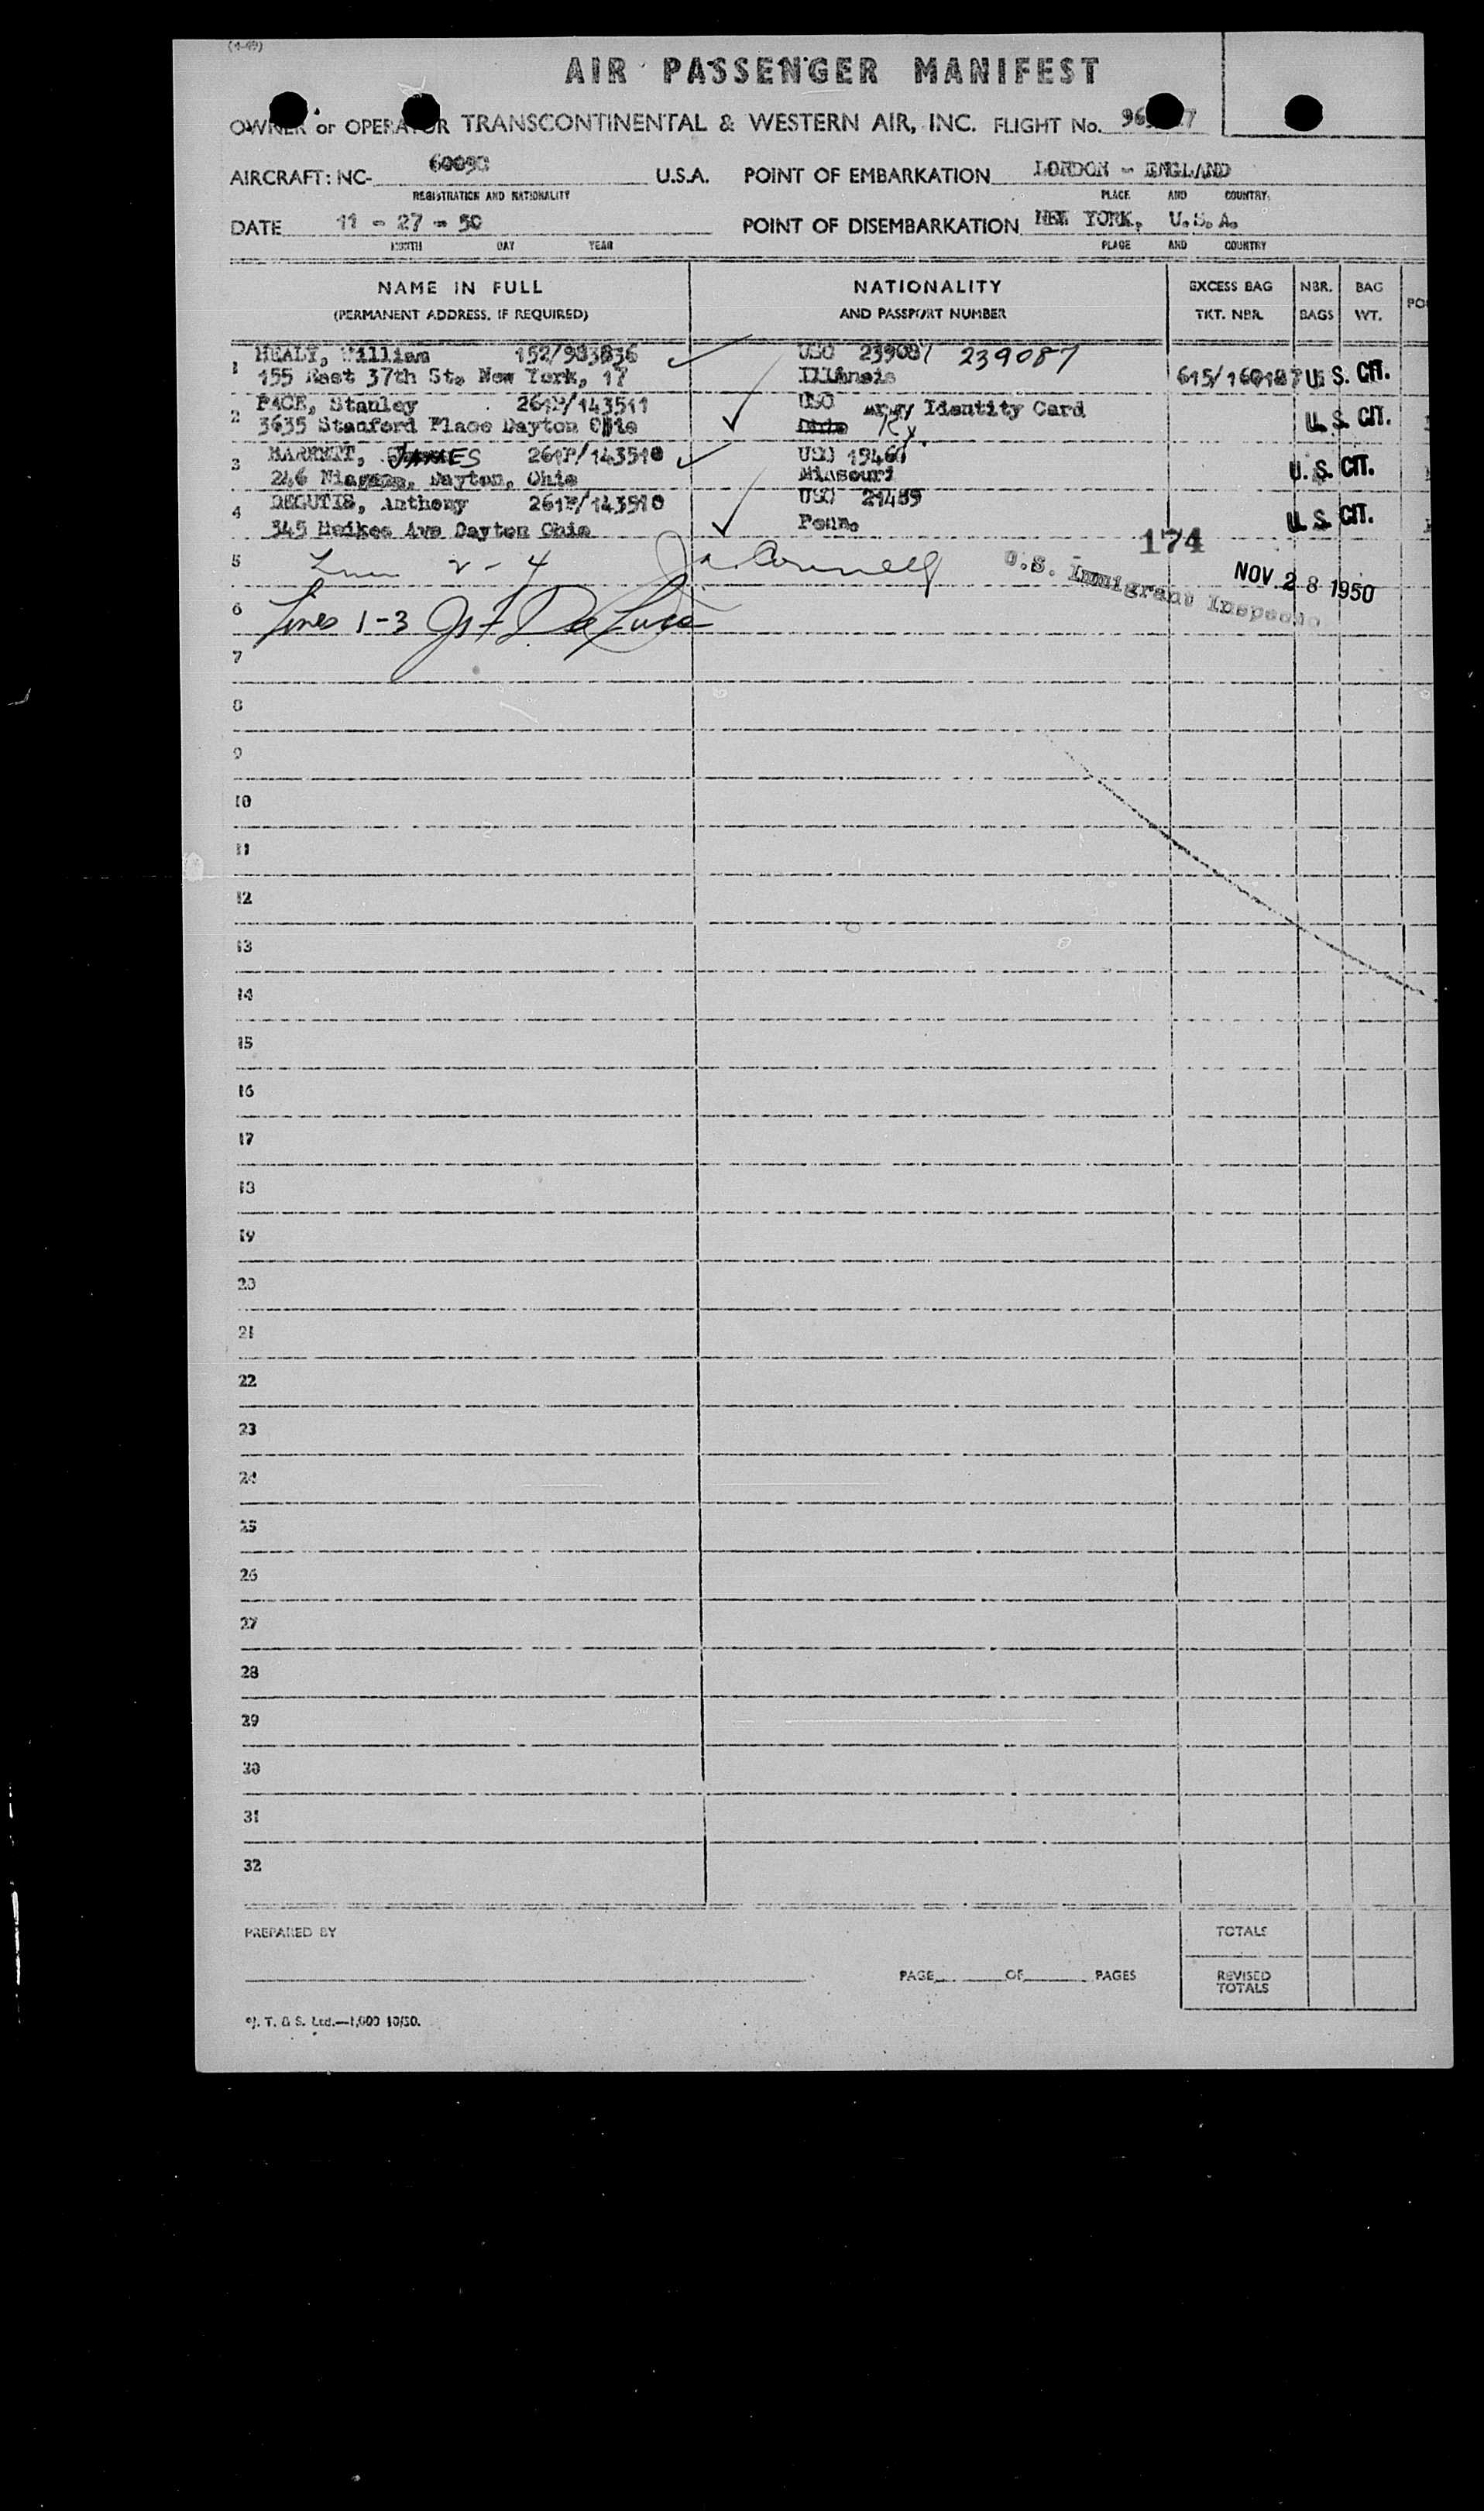 (4-49)
AIR PASSENGER MANIFEST
OWNER or OPERATOR TRANSCONTINENTAL & WESTERN AIR, INC. FLIGHT No.
AIRCRAFT: NC- 60090 U.S.A. POINT OF EMBARKATION LONDON - ENGLAND
REGISTRATION AND NATIONALITY PLACE AND COUNTRY
DATE 11 - 27 - 50 POINT OF DISEMBARKATION NEW YORK, U.S.A.
MONTH DAY YEAR PLACE AND COUNTRY
NAME IN FULL NATIONALITY EXCESS BAG NBR. BAG
(PERMANENT ADDRESS, IF REQUIRED) AND PASSPORT NUMBER TKT. NBR. BAGS WT.
1 HEALY, William 152/983836 USO 239087 239087
155 East 37th St. New York, 17 Illinois 615/160187 U.S. CIT.
2 PACE, Stanley 261P/143511 USO Army Identity Card
3635 Stanford Place Dayton Ohio Ky. U.S. CIT.
3 BARRETT, JAMES 261P/143510 USO
246 Niagara, Dayton, Ohio Missouri U.S. CIT.
4 DEGUTIS, Anthony 261P/143510 USO 21489
345 Heikes Ave Dayton Ohio Penn. U.S. CIT.
174
5 2 - 4 U.S. Immigrant Inspector NOV 28 1950
6 Lines 1-3
7
8
9
10
11
12
13
14
15
16
17
18
19
20
21
22
23
24
25
26
27
28
29
30
31
32
PREPARED BY TOTALS
PAGE OF PAGES REVISED
TOTALS
T. & S. Ltd.—1,000 10/50.